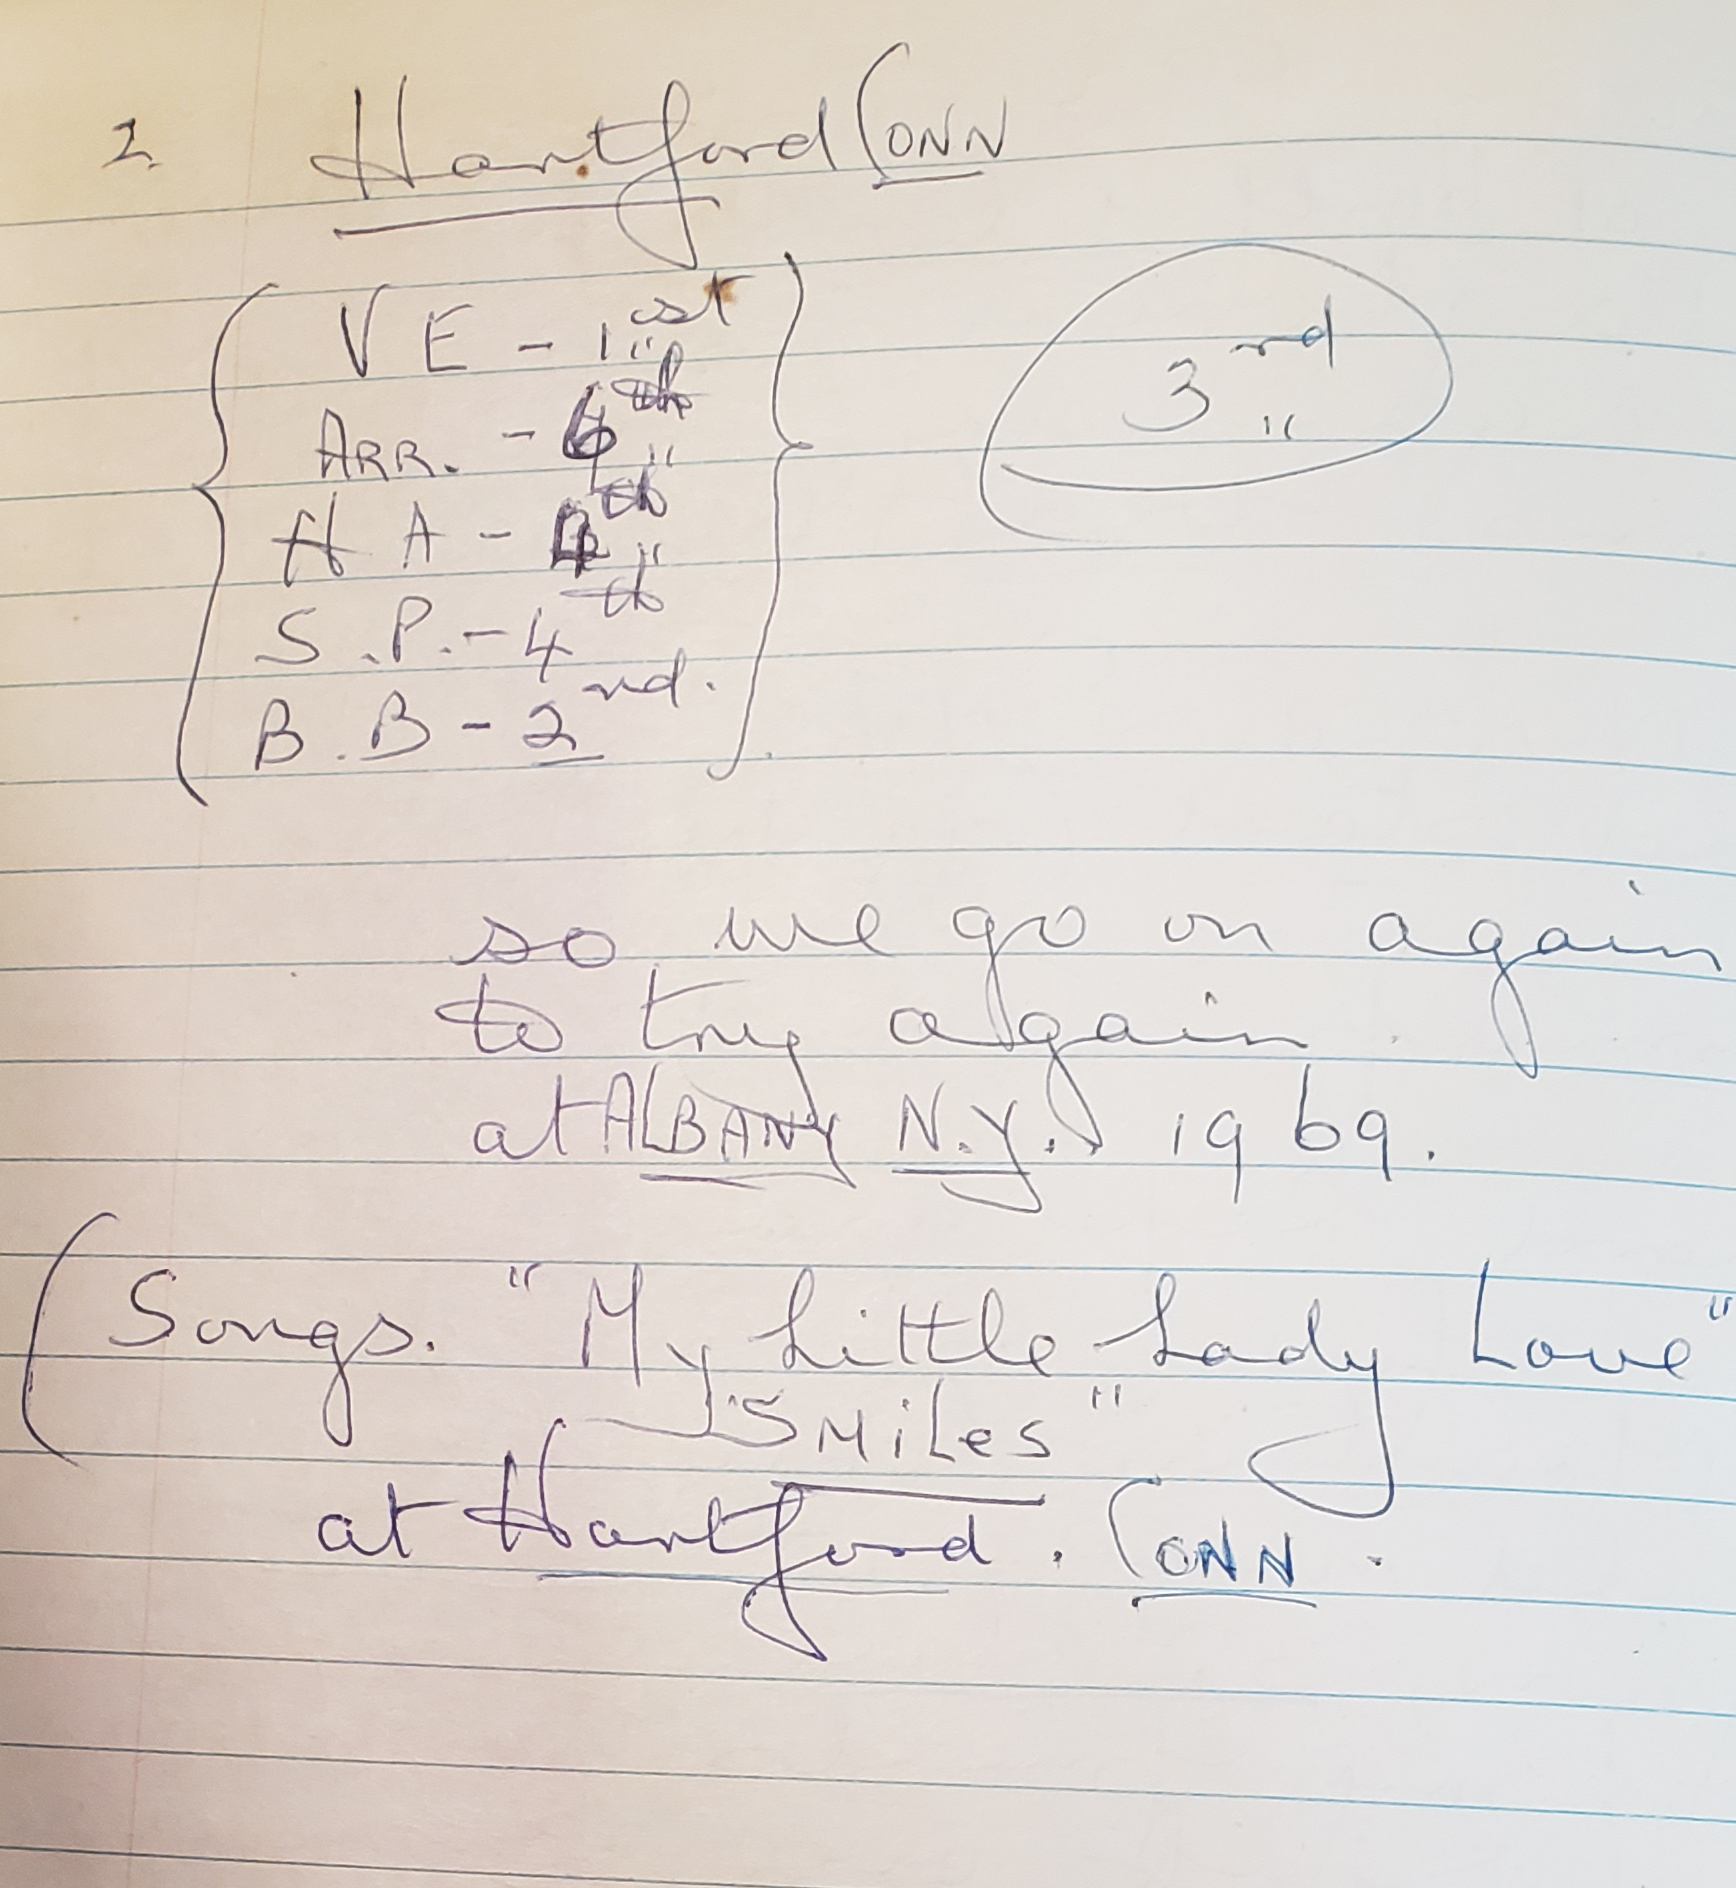 2. Hartford CONN
VE - 1st
3rd
ARR. - 6th
HA - 4th
S.P. - 4th
B.B - 2nd.
so we go on again
to try again.
at ALBANY N.Y. 1969.
(Songs. "My Little Lady Love"
"SMiLes"
at Hartford. CONN.